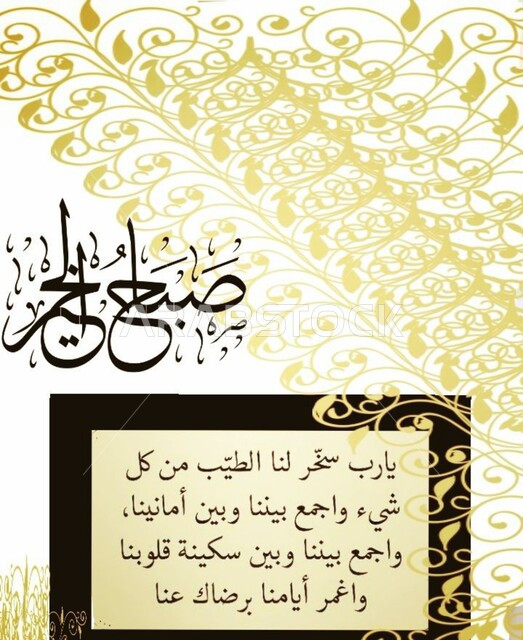 صباح الخير
ARABSTOCK
يارب سخّر لنا الطيّب من كل
شيء واجمع بيننا وبين أمانينا،
واجمع بيننا وبين سكينة قلوبنا
واغمر أيامنا برضاك عنا